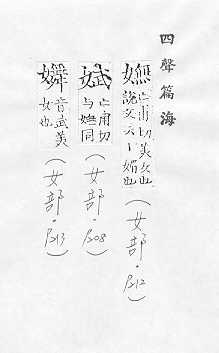 四聲篇海
嫵 亡甫切美女也
說文云丨媚也
(女部·P212)
娬 亡甫切
与嫵同
(女部·P208)
音武美
女也
(女部·P213)